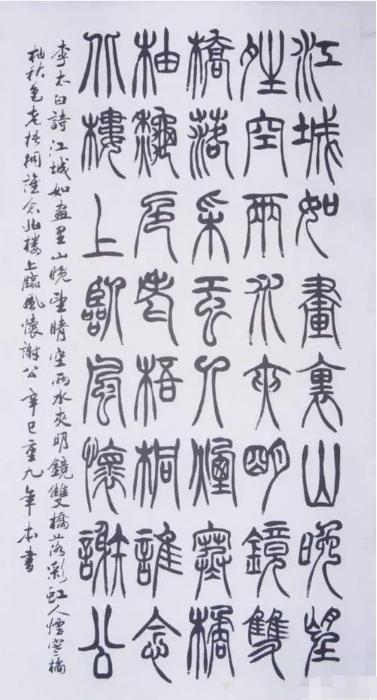 江城如畫裏山晚望
晴空兩水夾明鏡雙
橋落采虹人煙寒橘
柚秋色老梧桐誰念
北樓上臨風懷謝公
李太白詩江城如畫里山晚望晴空兩水夾明鏡雙橋落彩虹人煙寒橘
柚秋色老梧桐誰念北樓上臨風懷謝公辛巳重九年本書